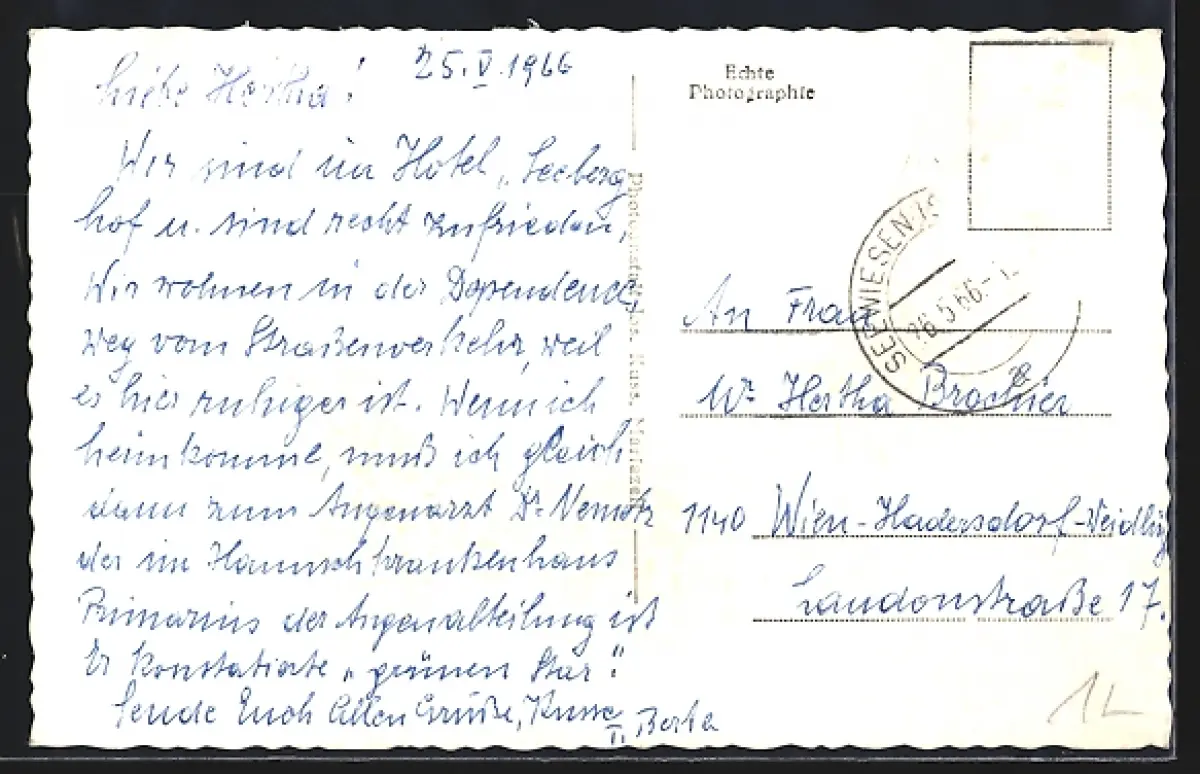 25.V.1966
Liebe Hertha!
Wir sind im Hotel „Seeberg
hof u. sind recht zufrieden,
Wir wohnen in der Dependence,
weg vom Straßenverkehr, weil
es hier ruhiger ist. Wenn ich
heimkomme, muß ich gleich
dann zum Augenarzt Dr. Nemetz
der im Hanuschkrankenhaus
Primarius der Augenabteilung ist
Er konstatierte „grünen Star".
Sende Euch Allen Grüße, Küsse
T. Berta
Echte
Photographie
SEEWIESEN
26.5.66.
An Frau
Hertha
1140 Wien-Hadersdorf-Weidling
Laudonstraße 17.